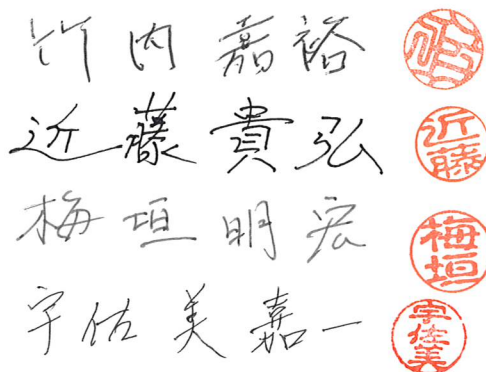 竹内嘉裕
近藤貴弘 近藤
梅垣明宏 梅垣
宇佐美嘉一 宇佐美